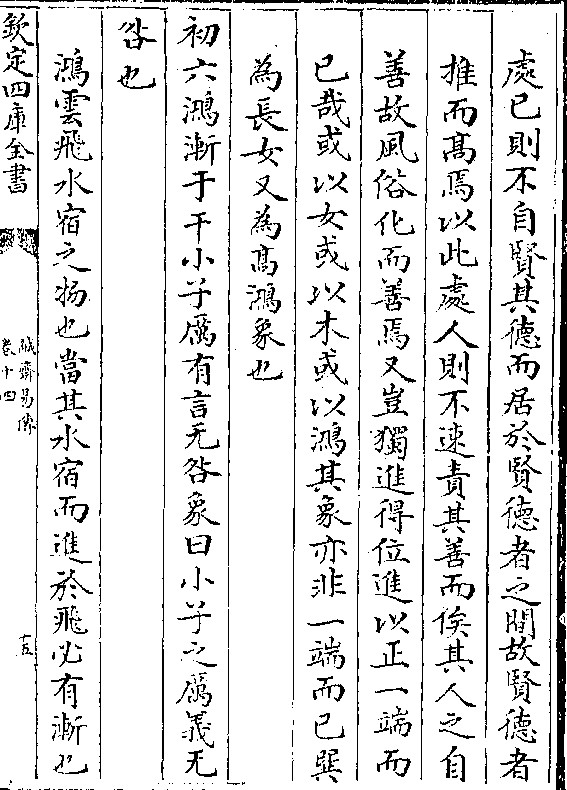 處已則不自賢其德而居於賢徳者之間故賢德者
推而髙焉以此處人則不速責其善而俟其人之自
善故風俗化而善焉又豈獨進得位進以正一端而
已哉或以女或以木或以鴻其象亦非一端而已巽
為長女又為髙鴻象也
初六鴻漸于干小子厲有言无咎象曰小子之厲義无
咎也
鴻雲飛水宿之物也當其水宿而進於飛必有漸也
欽定四庫全書
誠齋易傳
卷十四
十五